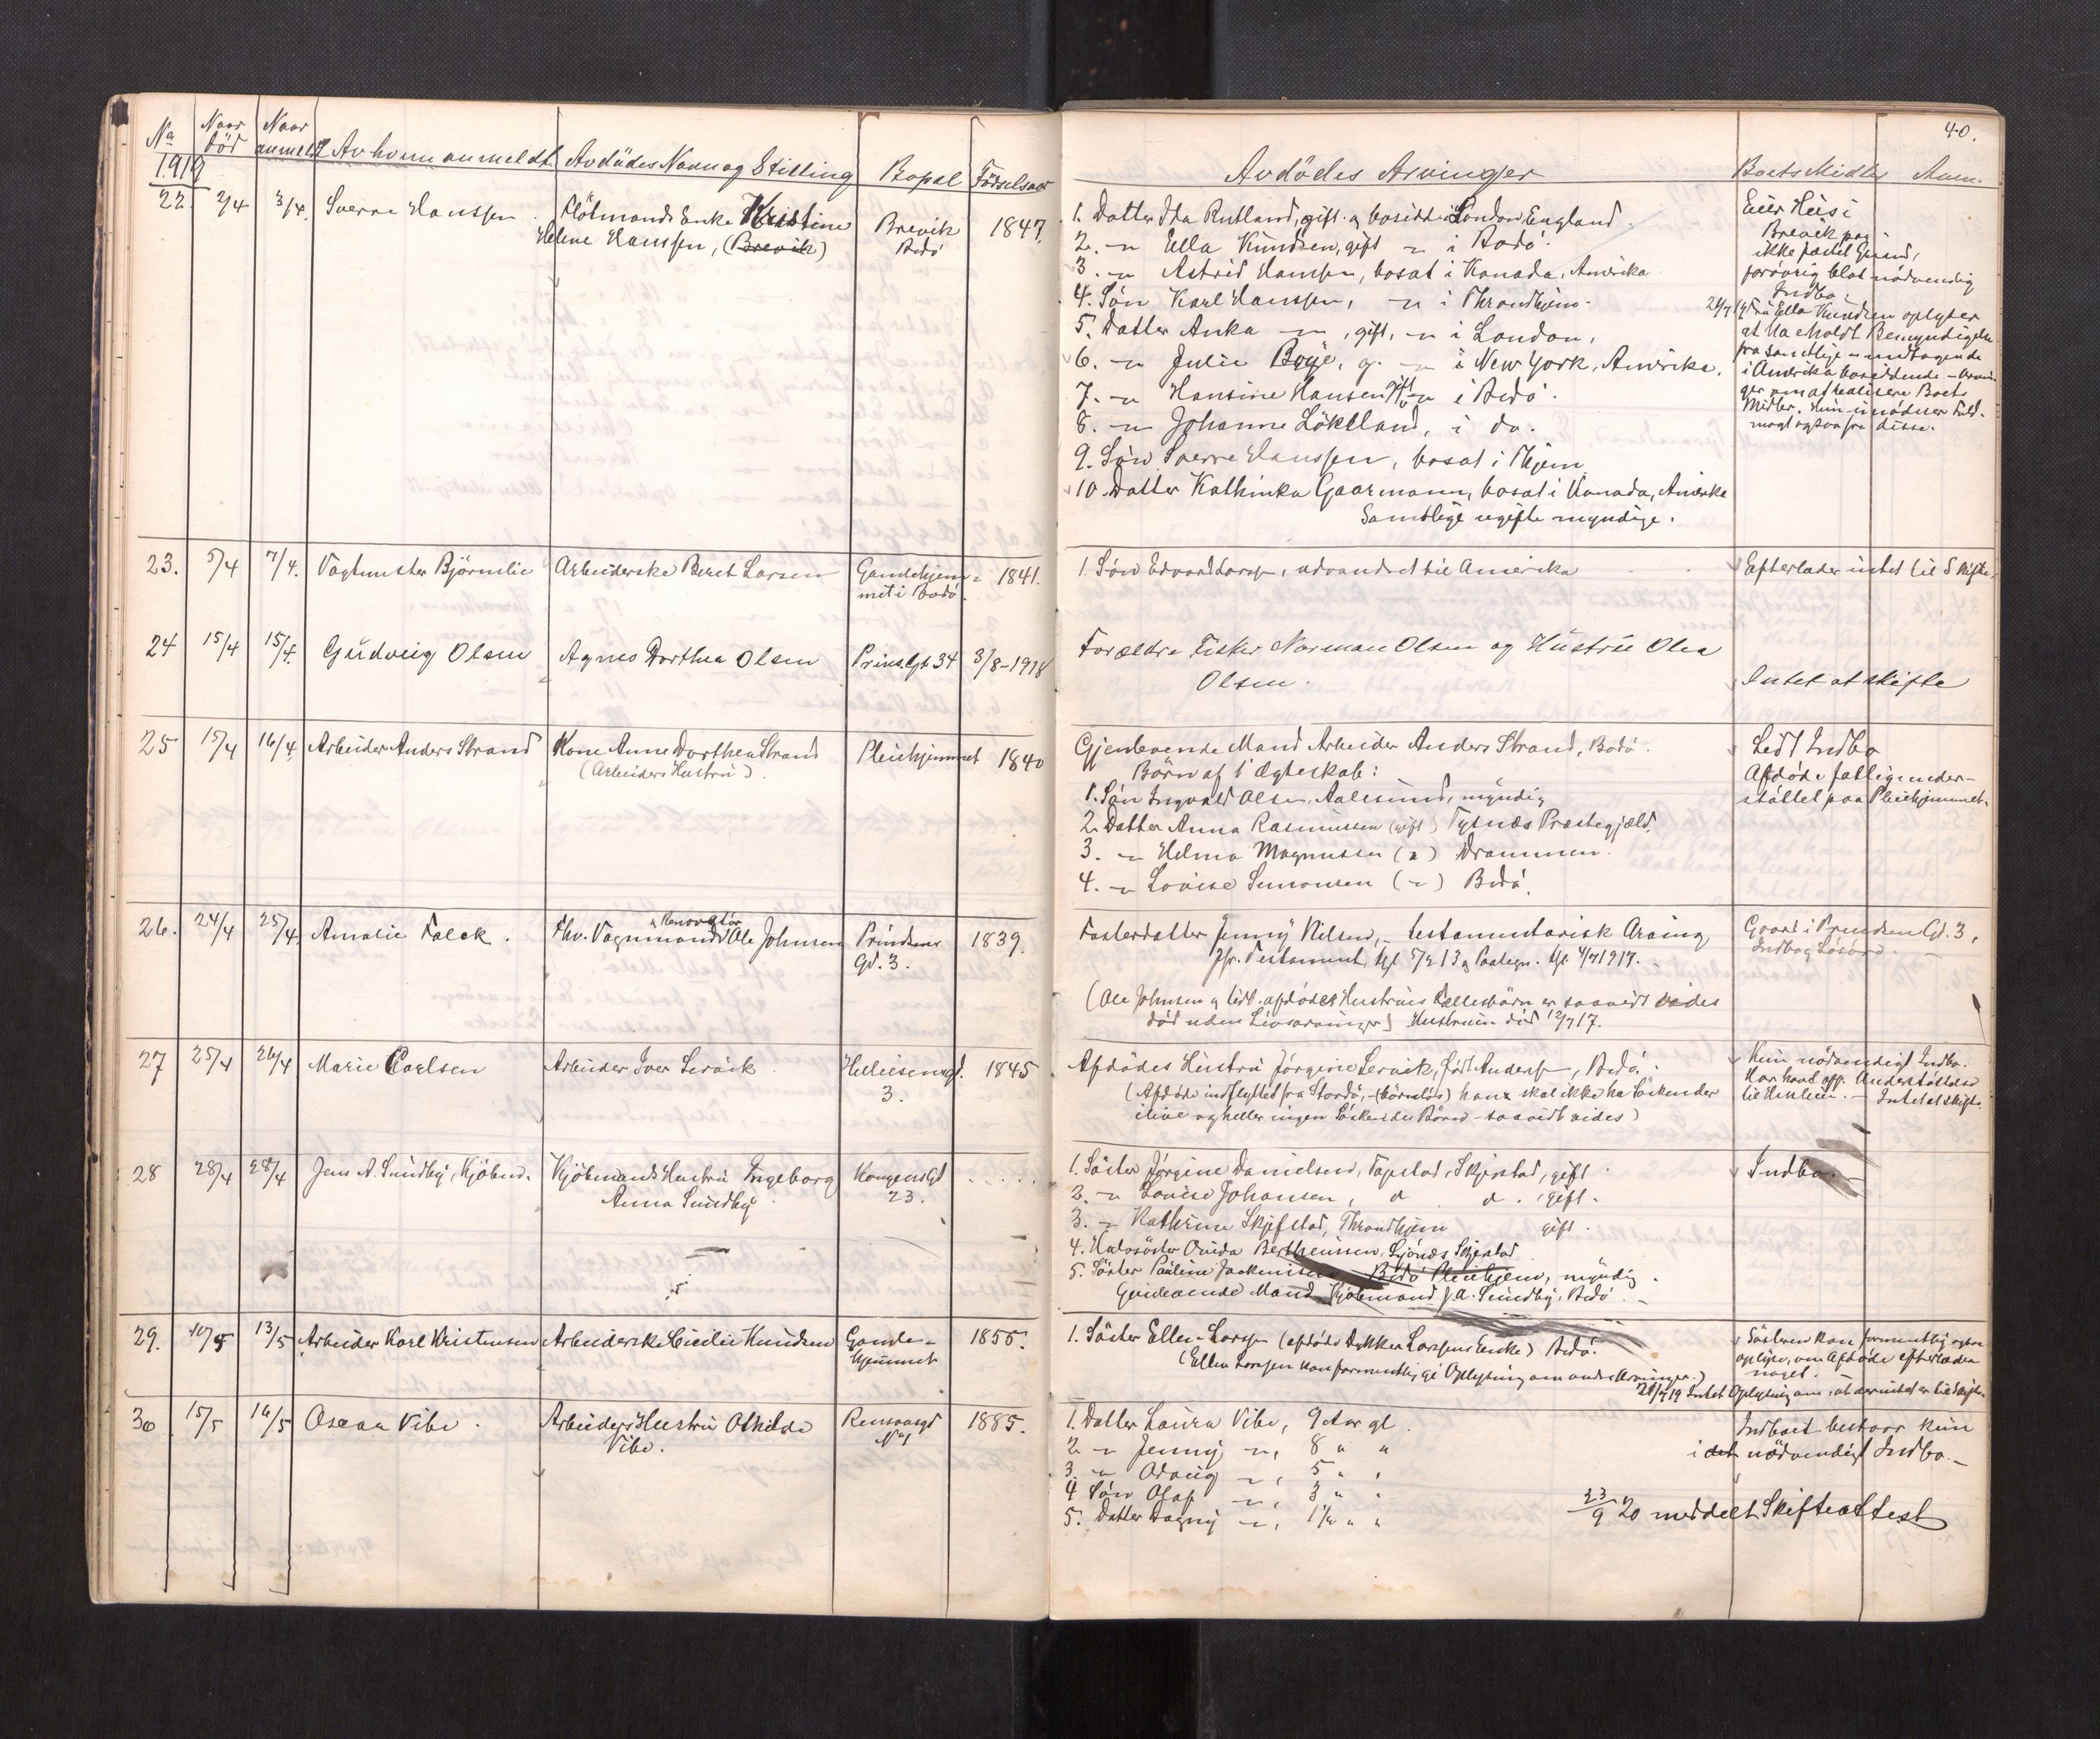 No
Naar död
Naar anmeldt
Av hvem anmeldt
Avdödes Navn og Stilling
Bopæl
Födselsaar
1919
22. 2/4 3/4. Sverre Hanssen. Flötmands Enke Kristine
Helene Hanssen, (Brevik)
Brevik
Bodö
1847.
23. 5/4 7/4. Vagtmester Björnlie Arbeiderske Beret Larsen Gamlehjem-
met i Bodö.
1841.
24 15/4 15/4. Gudveig Olsen Agnes Dorthea Olsen Prins.Gt 34 3/8-1918
25 15/4 16/4. Arbeider Anders Strand Kone Anne Dorthea Strand
(Arbeiders Hustru).
Pleiehjemmet 1840
26. 24/4 25/4 Amalie Falck. Fhv. Vognmand & Renovatör Ole Johnsen Prindsens
Gd. 3.
1839.
27 25/4 26/4 Marie Carlsen Arbeider Iver Lervik. Helliesensgt.
3.
1845
28 28/4 28/4 Jens A. Sundby, Kjöbmd. Kjöbmands Hustru Ingeborg
Anna Sundby.
Kongensgt
23.
29. 10/5 13/5 Arbeider Karl Kristensen Arbeiderske Cicilie Knudsen Gamle-
hjemmet
1855.
30 15/5 16/5 Oscar Vibe. Arbeiders Hustru Othilde
Vibe.
Rensaasgt
No 1
1885.
40.
Avdödes Arvinger
Boets Midler Anm.
1. Datter Ida Rutland, gift. og bosidd. i London England.
2. -"- Ella Knudsen, gift -"- i Bodö.
3. -"- Astrid Hansen, bosat i Kanada, Amerika
4. Sön Karl Hanssen, -"- i Throndhjem.
5. Datter Anka -"-, gift, -"- i London,
6. -"- Julie Boye, g. -"- i New York, Amerika,
7. -"- Hansine Hansen gift -"- i Bodö.
8. -"- Johanne Lökkland, i do.
9. Sön Sverre Hanssen, bosat i Thjem
10. Datter Kathinka Gaarmann, bosat i Kanada, Amerika
Samtlige ugifte myndige.
Eier Hus i
Brevik paa
ikke fæstet Grund,
forövrig blot nödvendig
Indbo.
Fru Ella Knudsen oplyser
at ha erholdt Bemyndigelse
fra samtlige - undtagende
i Amerika boseddende - Arvin-
ger om at realisere Boets
Midler. Hun indhenter Fuld-
magt ogsaa fra disse.
1. Sön Edvard Larsen, udvandret til Amerika
Efterlader intet til Skifte.
Forældre Fisker Norman Olsen og Hustru Olea
Olsen.
Intet at skifte
Gjenlevende Mand Arbeider Anders Strand, Bodö.
Börn af 1' Ægteskab:
1. Sön Ingvald Olsen, Aalesund, myndig
2. Datter Anna Rasmussen (gift) Tysnæs Præstegjæld.
3. -"- Helma Magnussen (") Drammen.
4. -"- Lovise Simonsen (-"-) Bodö.
Lidt Indbo
Afdöde fattigunder-
stöttet paa Pleiehjemmet.
Fosterdatter Jenny Nilsen, - testamentarisk Arving
jfr. Testament, tgl 5/2 13 og Paategn. tgl. 4/7 1917.
(Ole Johnsen og tidl. afdödes Hustrues Fællesbörn er saavidt vides
död uden Livsarvinger) Hustruen död 12/7 17.
Gaard i Prindsens Gd. 3,
Indbo og Lösöre.
Afdödes Hustru Jörgine Lervik, född Anders., Bodö.
(Afdöde indflyttet fra Stordö, - (börnlös) hans skal ikke ha Söskender
ilive og heller ingen Söskendes Börn - saavidt vides)
Kun nödvendigt Indbo.
Har havt off. Understöttelse
til Husleie. - Intet at skifte.
1. Söster Jörgine Danielsen, Fagstad, Skjerstad, gift.
2. -"- Lovise Johansen, d d. gift.
3. -"- Kathrine Skjefstad, Throndhjem gift.
4. Halvsöster Ovida Berthensen, Ljönes Skjerstad
5. Söster Pauline Bodö Pleiehjem, myndig.
Gjenlevende Mand Kjöbmand J. A. Sundby, Bodö.
Indbo.
1. Söster Ellen Larsen (afdöde Dykker Larsens Enke) Bodö.
(Ellen Larsen kan formentlig gi Oplysning om andre Arvinger.)
Söstren kan formentlig ogsaa
oplyse, om Afdöde efterlader
noget.
Intet Oplysning om, at der intet er til Skifte.
1. Datter Laura Vibe, 9 Aar gl.
2. -"- Jenny -"-, 8 " "
3. -"- Odveig -"-, 5 " "
4 Sön Olaf -"-, 3 " "
5. Datter Dagny -"-, 1½ " "
Indboet bestaar kun
i det nödvendigt Indbo.-
23/9 20 meddelt Skifteattest